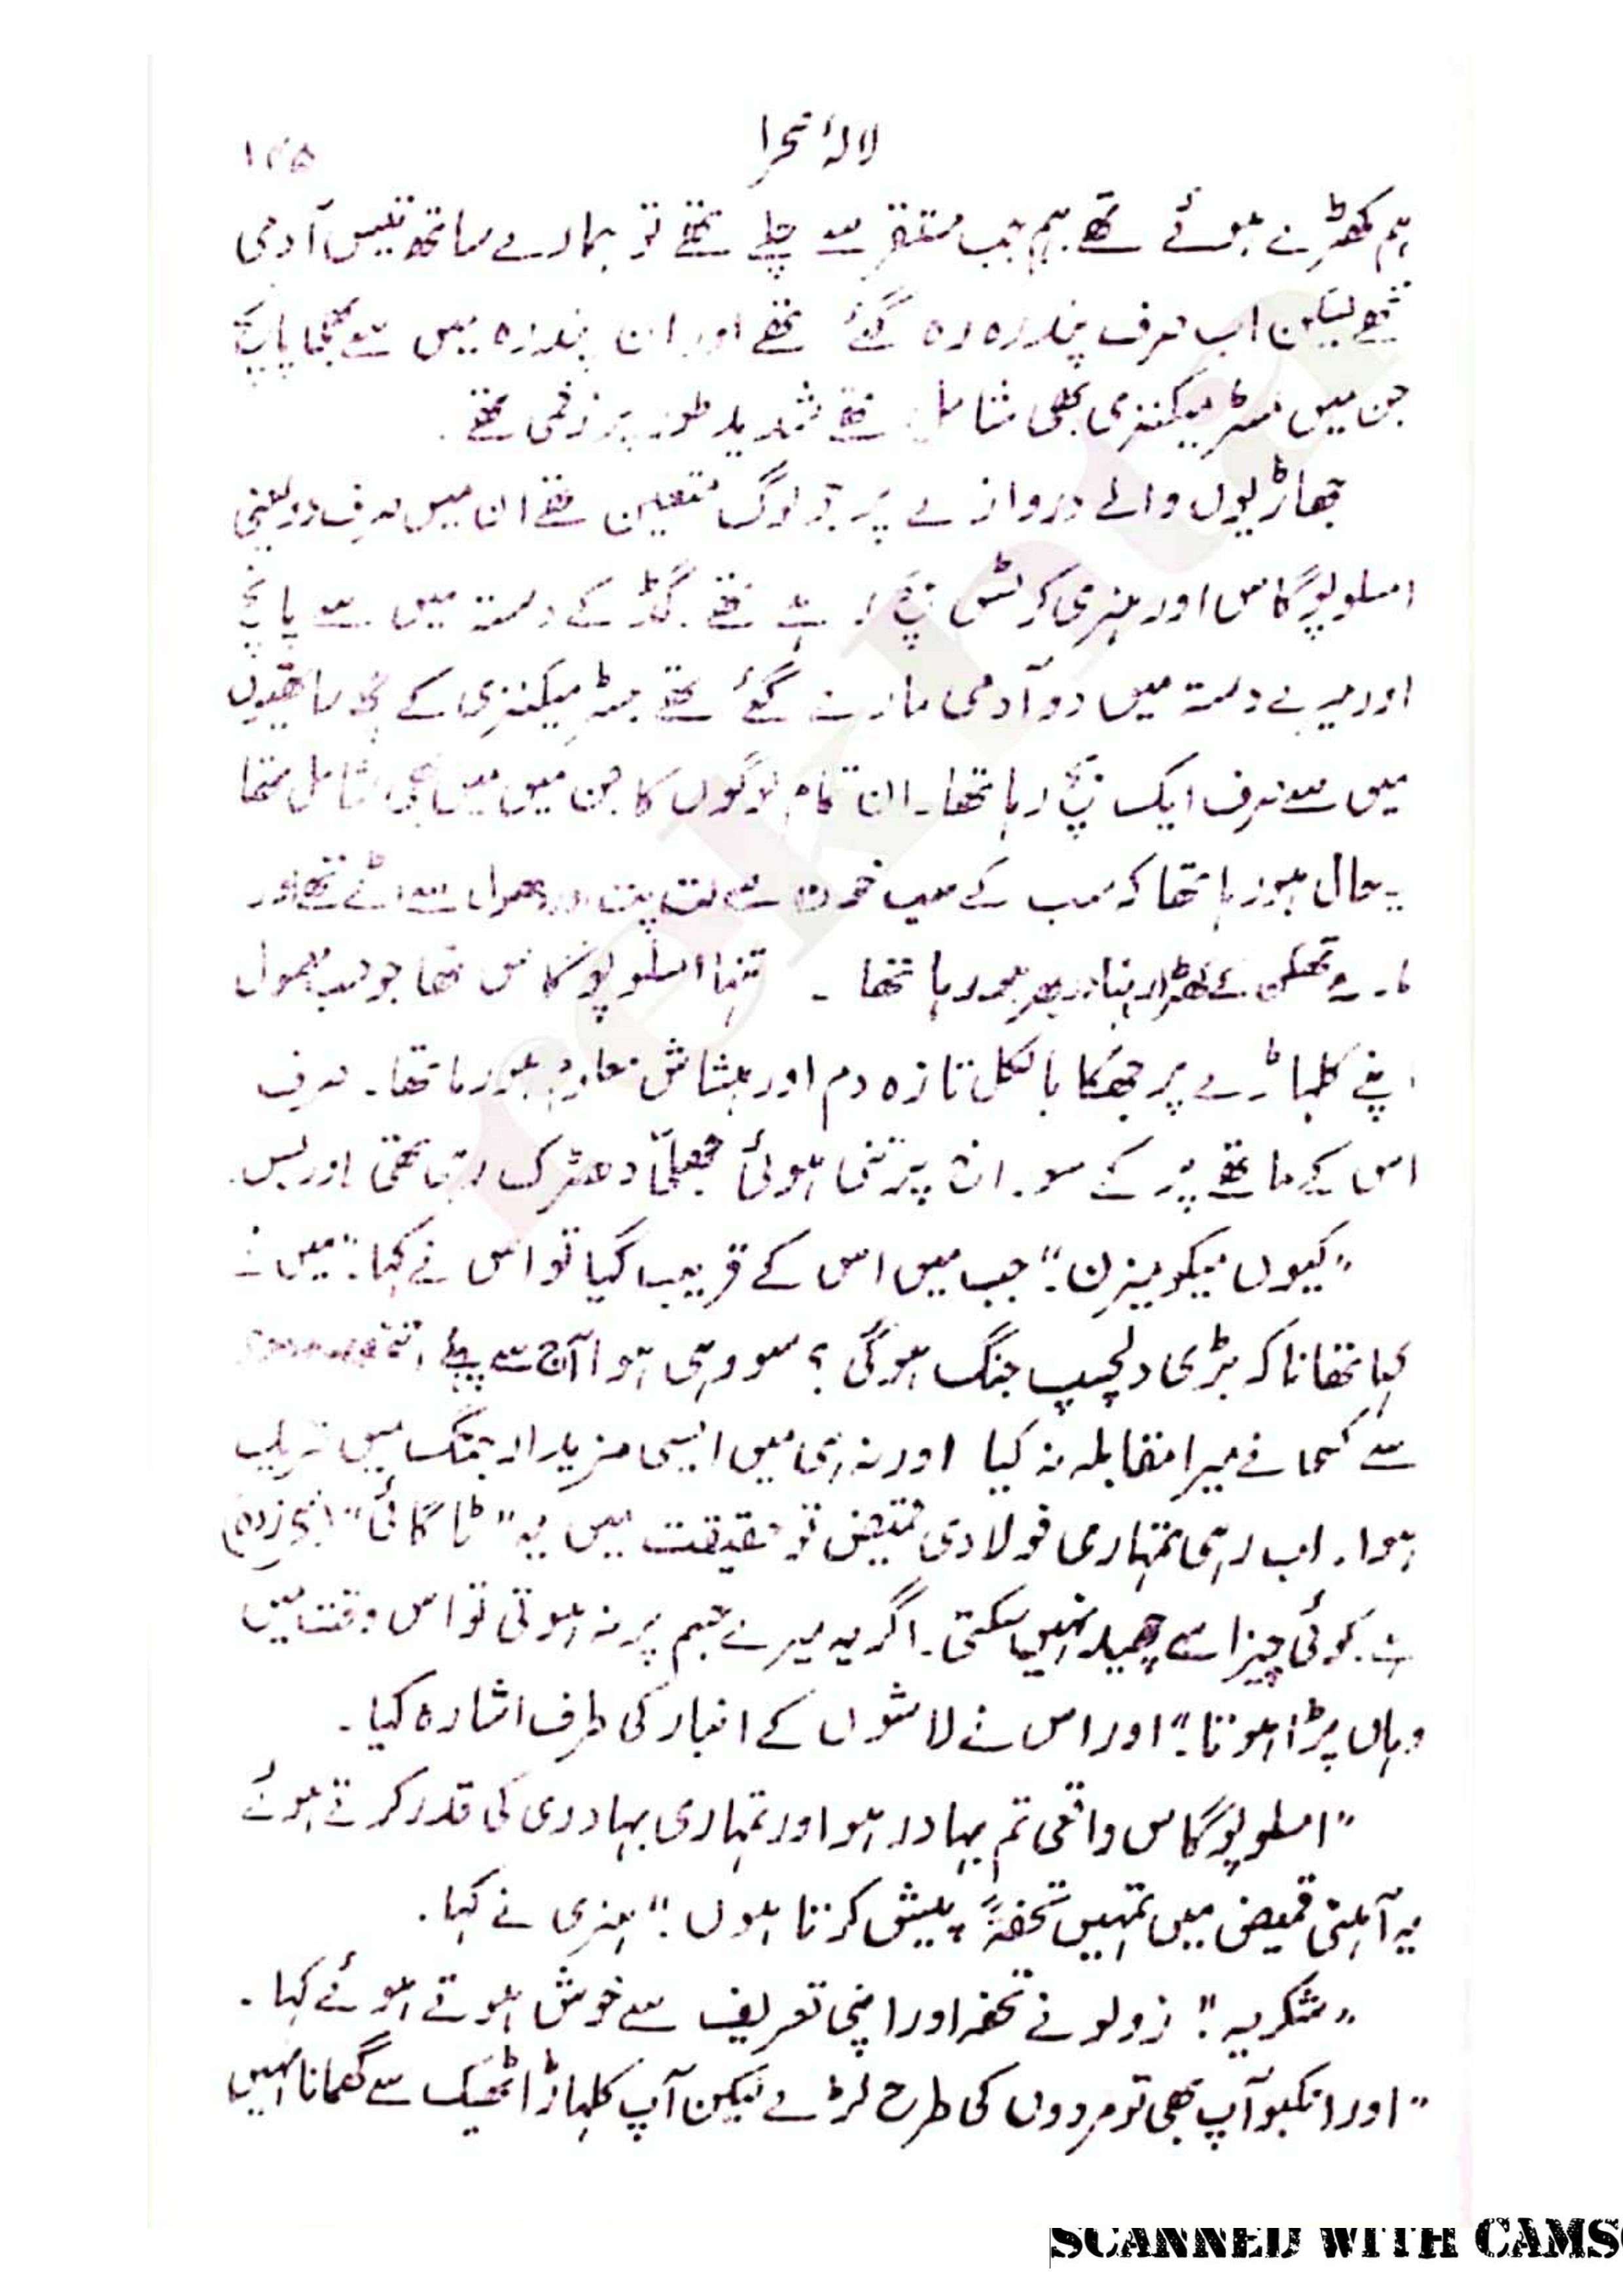 لالۂ صحرا
۱۴۵
ہم کھڑے ہوئے تھے ہم جب مستقر سے چلے تھے تو ہمارے ساتھ تیس آدمی
تھے لیکن اب صرف پندرہ رہ گئے تھے اور ان پندرہ میں سے بھی پانچ
جن میں مسٹر میکنزی بھی شامل تھے شدید طور پر زخمی تھے۔
جھاڑیوں والے دروازے پر جو لوگ متعین تھے ان میں صرف دو یعنی
امسلوپوگاس اور ہنری کرٹس بچ رہے تھے۔ گڈ کے دستہ میں سے پانچ
اور میرے دستہ میں دو آدمی مارے گئے تھے مسٹر میکنزی کے ساتھیوں
میں سے صرف ایک بچ رہا تھا۔ ان تمام لوگوں کا جن میں میں بھی شامل تھا
یہ حال ہو رہا تھا کہ سب کے سب خون سے لت پت اور دھول سے اٹے تھے اور
مارے تھکن کے کھڑا رہنا دوبھر ہو رہا تھا ۔ تنہا امسلوپوگاس تھا جو حسب معمول
اپنے کلہاڑے پر جھکا بالکل تازہ دم اور ہشاش معلوم ہو رہا تھا۔ صرف
اس کے ماتھے پر کے سوراخ پر تنی ہوئی جھلّی دھڑک رہی تھی اور بس۔
"کیوں میکومیزن؟" جب میں اس کے قریب گیا تو اس نے کہا: "میں نے
کہا تھا نا کہ بڑی دلچسپ جنگ ہوگی؟ سو وہی ہوا آج سے پہلے اتنے
سے کسی نے میرا مقابلہ نہ کیا اور نہ ہی میں ایسی مزیدار جنگ میں شریک
ہوا۔ اب رہی تمہاری فولادی قمیض تو حقیقت میں یہ "ٹاگائی"
ہے۔ کوئی چیز اسے چھید نہیں سکتی۔ اگر یہ میرے جسم پر نہ ہوتی تو اس وقت میں
وہاں پڑا ہوتا۔" اور اس نے لاشوں کے انبار کی طرف اشارہ کیا۔
"امسلوپوگاس واقعی تم بہادر ہو اور تمہاری بہادری کی قدر کرتے ہوئے
یہ آہنی قمیض میں تمہیں تحفۃً پیش کرتا ہوں۔" ہنری نے کہا۔
"شکریہ۔" زولو نے تحفہ اور اپنی تعریف سے خوش ہوتے ہوئے کہا۔
"اور انکبو آپ بھی تو مردوں کی طرح لڑے لیکن آپ کلہاڑا ٹھیک سے گھمانا نہیں
SCANNED WITH CAMS